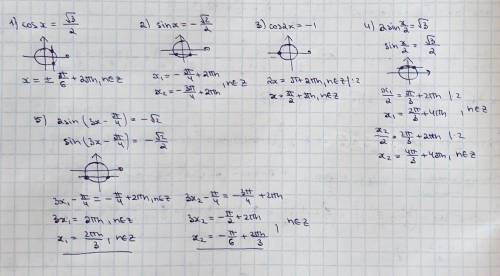 1) cosx = √3/2
x = ± π/6 + 2πn, n∈Z
2) sinx = -√2/2
x₁ = -π/4 + 2πn
x₂ = -3π/4 + 2πn, n∈Z
3) cos2x = -1
2x = π + 2πn, n∈Z |:2
x = π/2 + πn, n∈Z
4) 2sin x/2 = √3
sin x/2 = √3/2
x₁/2 = π/3 + 2πn |·2
x₁ = 2π/3 + 4πn, n∈Z
x₂/2 = 2π/3 + 2πn |·2
x₂ = 4π/3 + 4πn, n∈Z
5) 2sin(3x - π/4) = -√2
sin(3x - π/4) = -√2/2
3x₁ - π/4 = -π/4 + 2πn, n∈Z
3x₁ = 2πn, n∈Z
x₁ = 2πn/3, n∈Z
3x₂ - π/4 = -3π/4 + 2πn
3x₂ = -π/2 + 2πn
x₂ = -π/6 + 2πn/3, n∈Z